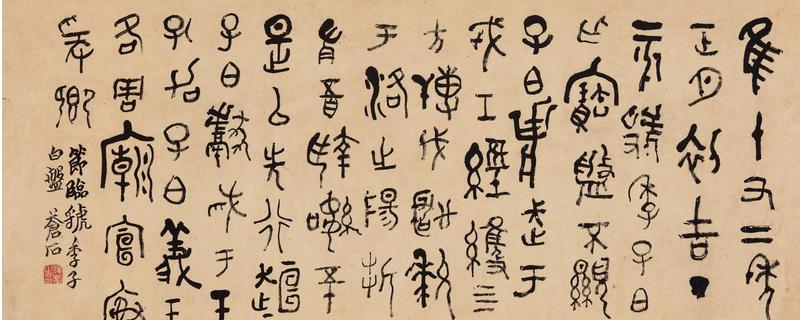 隹十又二年
正月初吉丁
亥虢季子白
乍寶盤不顯
子白壯武于
戎工經維四
方搏伐玁狁
于洛之陽折
首五百執訊五十
是以先行桓
子白獻馘于王
孔加子白義王
各周廟宣榭
爰卿
節臨虢季子
白盤 蒼石